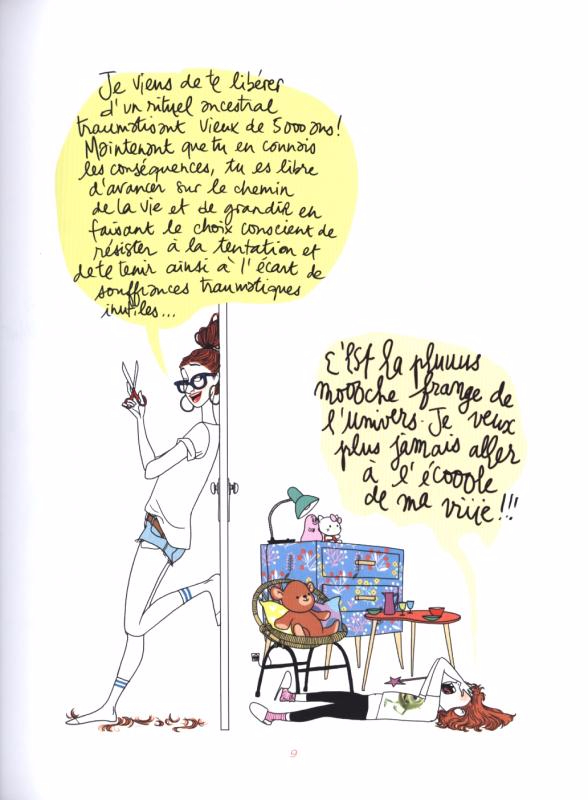 Je viens de te libérer
d'un rituel ancestral
traumatisant vieux de 5000 ans!
Maintenant que tu en connais
les conséquences, tu es libre
d'avancer sur le chemin
de la vie et de grandir en
faisant le choix conscient de
résister à la tentation et
de te tenir ainsi à l'écart de
souffrances traumatiques
inutiles...
C'EST la pluuus
moooche frange de
l'univers. Je veux
plus jamais aller
à l'écooole
de ma viiie!!!
9